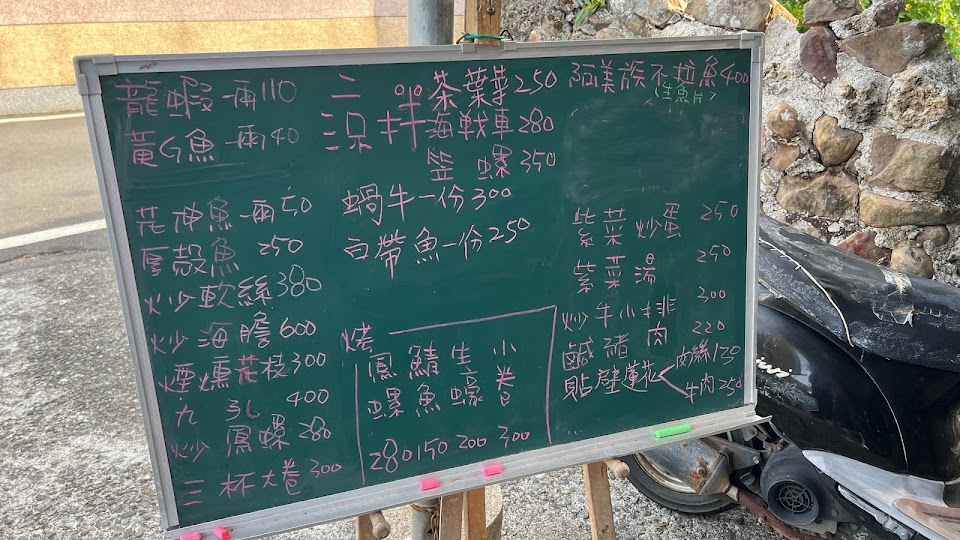 龍蝦一兩110
黃G魚一兩40
花神魚一兩50
厚殼魚 250
炒軟絲380
炒海膽600
煙燻花枝300
九孔 400
炒鳳螺280
三杯大卷300
三涼拌
茶葉 250
海戦車280
笠螺350
蝸牛一份300
白帶魚一份250
烤
鳳螺 鯖魚 生蠔 小卷
280 150 200 300
阿美族不拉魚400
<生魚片>
紫菜炒蛋 250
紫菜湯 250
炒牛小排 300
鹹豬肉 220
貼壁蓮花 肉絲120
牛肉250